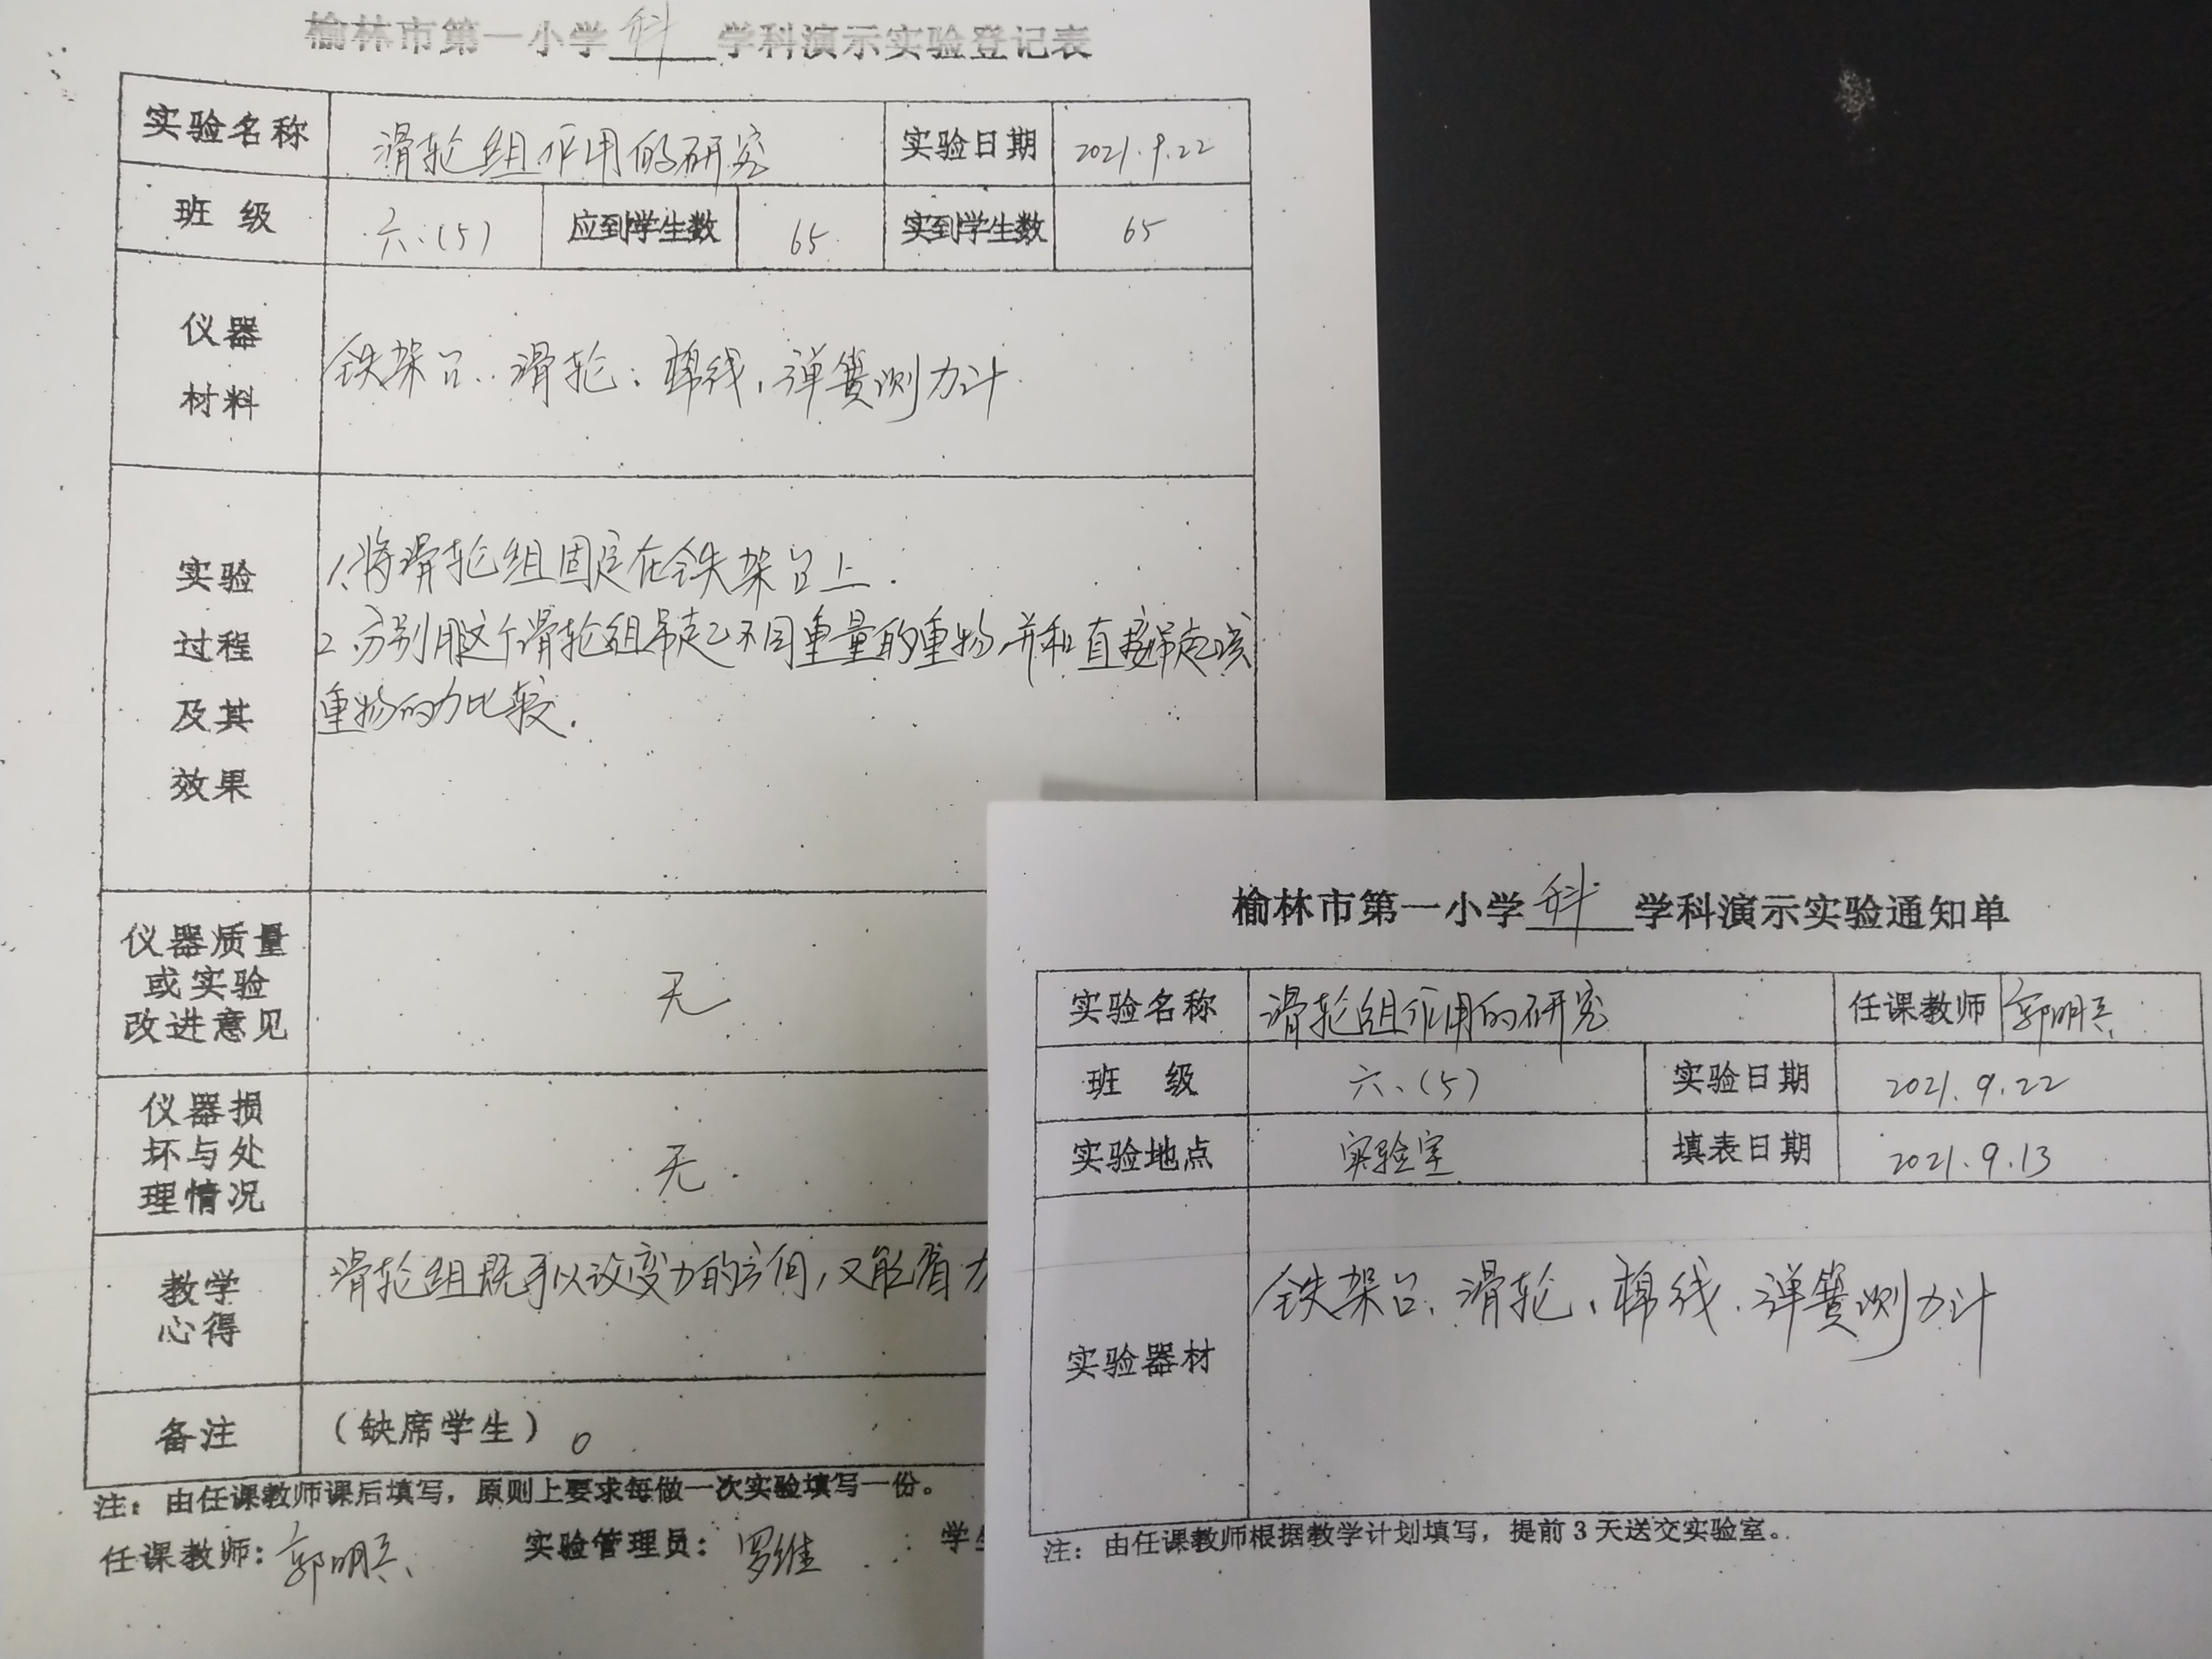 榆林市第一小学科学科演示实验登记表
实验名称 滑轮组作用的研究 实验日期 2021.9.22
班 级 六.(5) 应到学生数 65 实到学生数 65
仪器
材料
铁架台、滑轮、棉线、弹簧测力计
实验
过程
及其
效果
1、将滑轮组固定在铁架台上.
2、分别用这个滑轮组吊起不同重量的重物,并和直接吊起该
重物的力比较.
仪器质量
或实验
改进意见
无
仪器损
坏与处
理情况
无.
教学
心得
滑轮组既可以改变力的方向,又能省力
备注 (缺席学生) 0
注: 由任课教师课后填写,原则上要求每做一次实验填写一份。
任课教师: 郭明兵 实验管理员: 罗维 学生
榆林市第一小学科学科演示实验通知单
实验名称 滑轮组作用的研究 任课教师 郭明兵
班 级 六、(5) 实验日期 2021.9.22
实验地点 实验室 填表日期 2021.9.13
实验器材 铁架台、滑轮、棉线、弹簧测力计
注: 由任课教师根据教学计划填写,提前3天送交实验室。